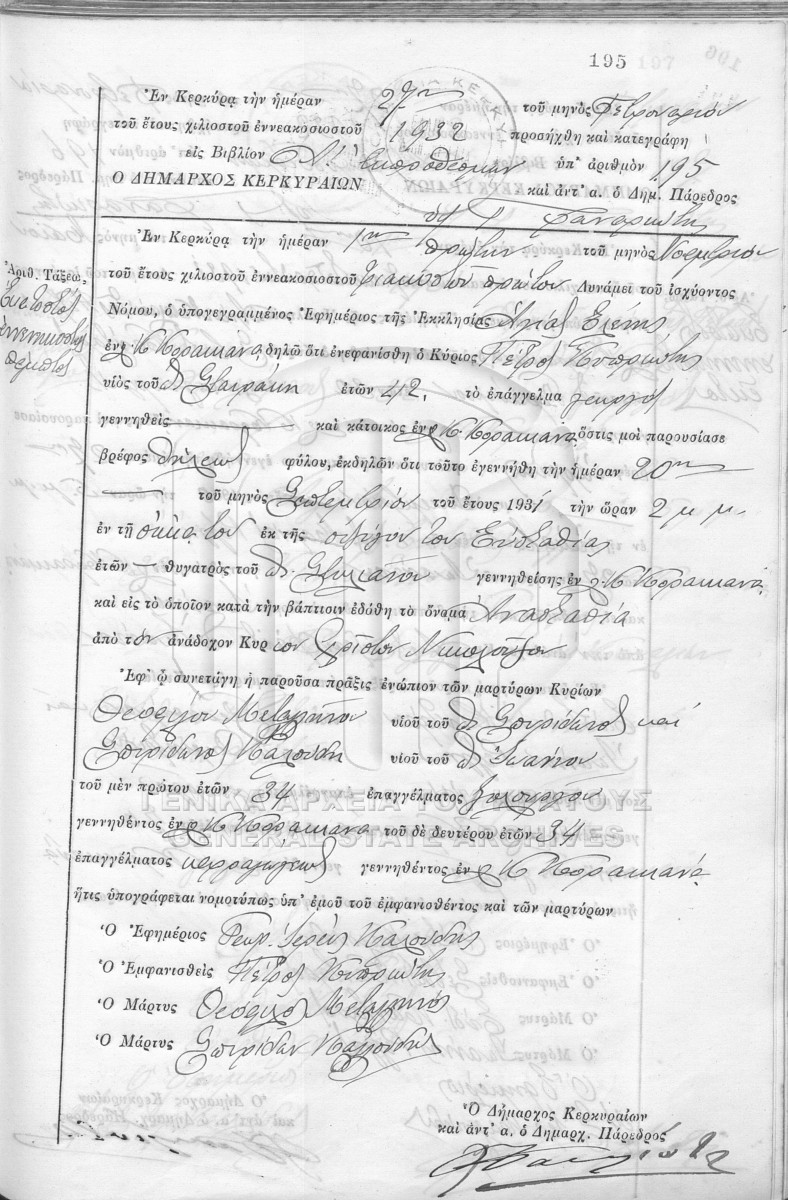 195
Ἐν Κερκύρᾳ τὴν ἡμέραν 27ην τοῦ μηνὸς Φεβρουαρίου
τοῦ ἔτους χιλιοστοῦ ἐννεακοσιοστοῦ 1932 προσήχθη καὶ κατεγράφη
εἰς Βιβλίον ὑπ' ἀριθμὸν 195
Ο ΔΗΜΑΡΧΟΣ ΚΕΡΚΥΡΑΙΩΝ καὶ ἀντ' α. ὁ Δημ. Πάρεδρος
Ἐν Κερκύρᾳ τὴν ἡμέραν 1ην πρώτην τοῦ μηνὸς Νοεμβρίου
Ἀριθ. Τάξεως
Ἑκατοστὸς
ἐννενηκοστὸς
πέμπτος
τοῦ ἔτους χιλιοστοῦ ἐννεακοσιοστοῦ τριακοστοῦ πρώτου Δυνάμει τοῦ ἰσχύοντος
Νόμου, ὁ ὑπογεγραμμένος Ἐφημέριος τῆς Ἐκκλησίας Ἁγίας Ἑλένης
ἐν Κ. Κορακιάνα δηλῶ ὅτι ἐνεφανίσθη ὁ Κύριος Πέτρος Κυπριώτης
υἱὸς τοῦ Σταμάτη ἐτῶν 42, τὸ ἐπάγγελμα γεωργὸς
γεννηθεὶς καὶ κάτοικος ἐν Κ. Κορακιάνα, ὅστις μοὶ παρουσίασε
βρέφος θήλεως φύλου, ἐκδηλῶν ὅτι τοῦτο ἐγεννήθη τὴν ἡμέραν 20ην
τοῦ μηνὸς Σεπτεμβρίου τοῦ ἔτους 1931 τὴν ὥραν 2 μ. μ.
ἐν τῇ οἰκίᾳ του ἐκ τῆς συζύγου του Εὐσταθίας
ἐτῶν — θυγατρὸς τοῦ Στυλιανοῦ γεννηθείσης ἐν Κ. Κορακιάνα
καὶ εἰς τὸ ὁποῖον κατὰ τὴν βάπτισιν ἐδόθη τὸ ὄνομα Ἀναστασία
ἀπὸ τὸν ἀνάδοχον Κύριον Χρῖστον
Ἐφ' ᾧ συνετάγη ἡ παροῦσα πρᾶξις ἐνώπιον τῶν μαρτύρων Κυρίων
Θεοφίλου Μεταλληνοῦ υἱοῦ τοῦ Σπυρίδωνος καὶ
Σπυρίδωνος Καλούδη υἱοῦ τοῦ Ἰωάννου
τοῦ μὲν πρώτου ἐτῶν 34 ἐπαγγέλματος ξυλουργοῦ
ΓΕΝΙΚΑ ΑΡΧΕΙΑ ΤΟΥ ΚΡΑΤΟΥΣ
γεννηθέντος ἐν Κ. Κορακιάνα τοῦ δὲ δευτέρου ἐτῶν 34
GENERAL STATE ARCHIVES
ἐπαγγέλματος καρραγωγέως γεννηθέντος ἐν Κ. Κορακιάνα
ἥτις ὑπογράφεται νομοτύπως ὑπ' ἐμοῦ τοῦ ἐμφανισθέντος καὶ τῶν μαρτύρων
Ὁ Ἐφημέριος Γεώρ. Ἱερεὺς Καλούδης
Ὁ Ἐμφανισθεὶς Πέτρος Κυπριώτης
Ὁ Μάρτυς Θεόφιλος Μεταλληνὸς
Ὁ Μάρτυς Σπυρίδων Καλούδης
Ὁ Δήμαρχος Κερκυραίων
καὶ ἀντ' α. ὁ Δημαρχ. Πάρεδρος